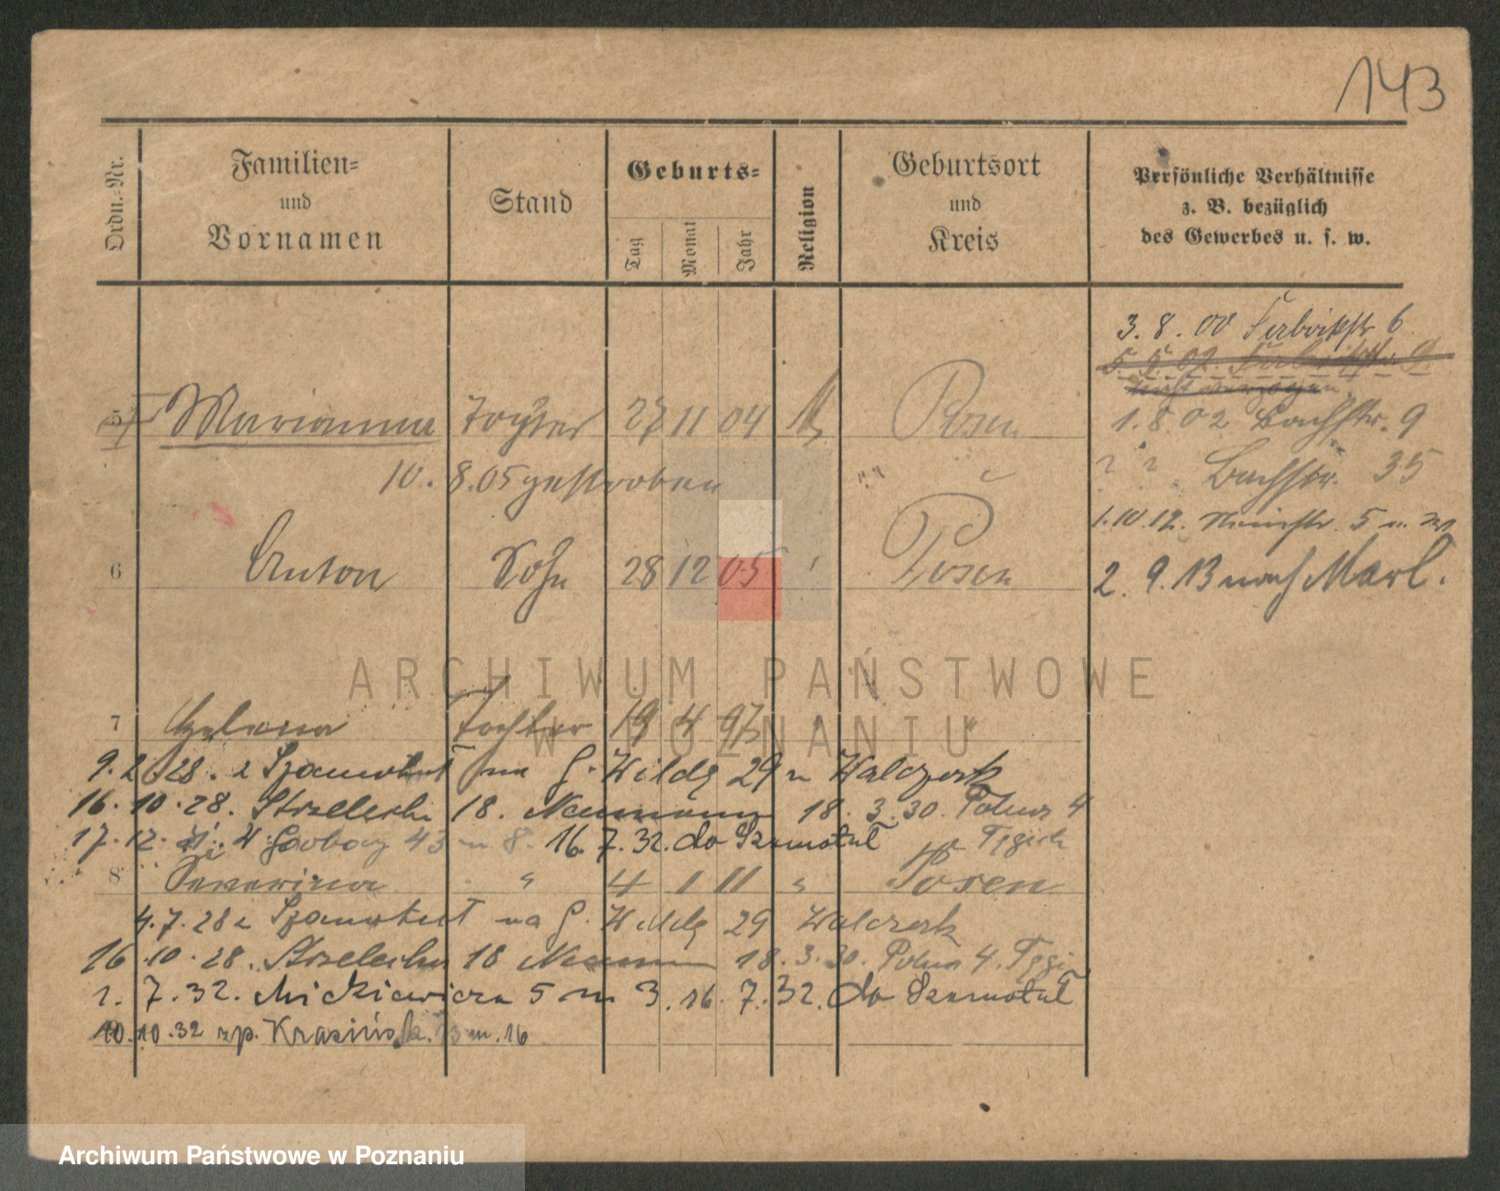 143
Ordn.-Nr.
Familien-
und
Vornamen
Stand
Geburts-
Tag
Monat
Jahr
Religion
Geburtsort
und
Kreis
Persönliche Verhältnisse
z. B. bezüglich
des Gewerbes u. s. w.
3. 8. 00 6
1. 8. 02 Bachstr. 9
Bachstr. 35
1.10.12. 5
2. 9. 13 nach Marl.
5 Marianna Tochter 27 11 04 Posen
10. 8. 05 gestorben
6 Anton Sohn 28 12 05 Posen
7 Helena Tochter 19 4 97
9. 2. 28. z Szamotuł na G. Wildę 29 u Walczak
16. 10. 28. Strzelecka 18. Neumann 18. 3. 30. 4
17. 12. Garbary 43 m 8. 16. 7. 32. do Szamotuł
8 Seweryna " 4 1 11 " Posen
4. 7. 28 z Szamotuł na G. Wildę 29 Walczak
16. 10. 28. Strzelecka 18 Neumann 18. 3. 30. 4.
1. 7. 32. Mickiewicza 5 m 3. 16. 7. 32. do Szamotuł
10. 10. 32 zp. Krasińsk. 13 m. 16
ARCHIWUM PAŃSTWOWE
W POZNANIU
Archiwum Państwowe w Poznaniu